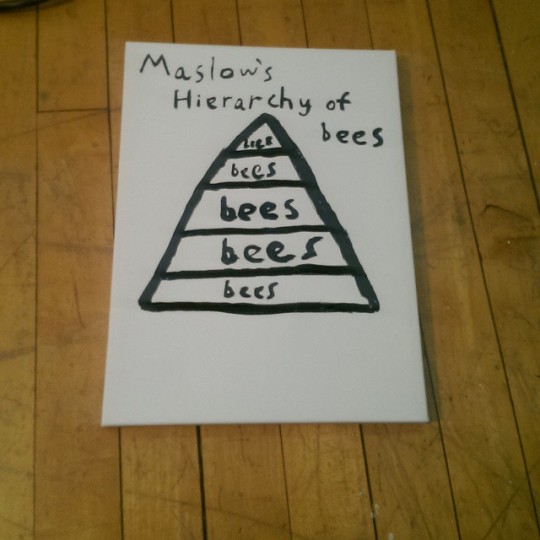 Maslow's
Hierarchy of
bees
bees
bees
bees
bees
bees